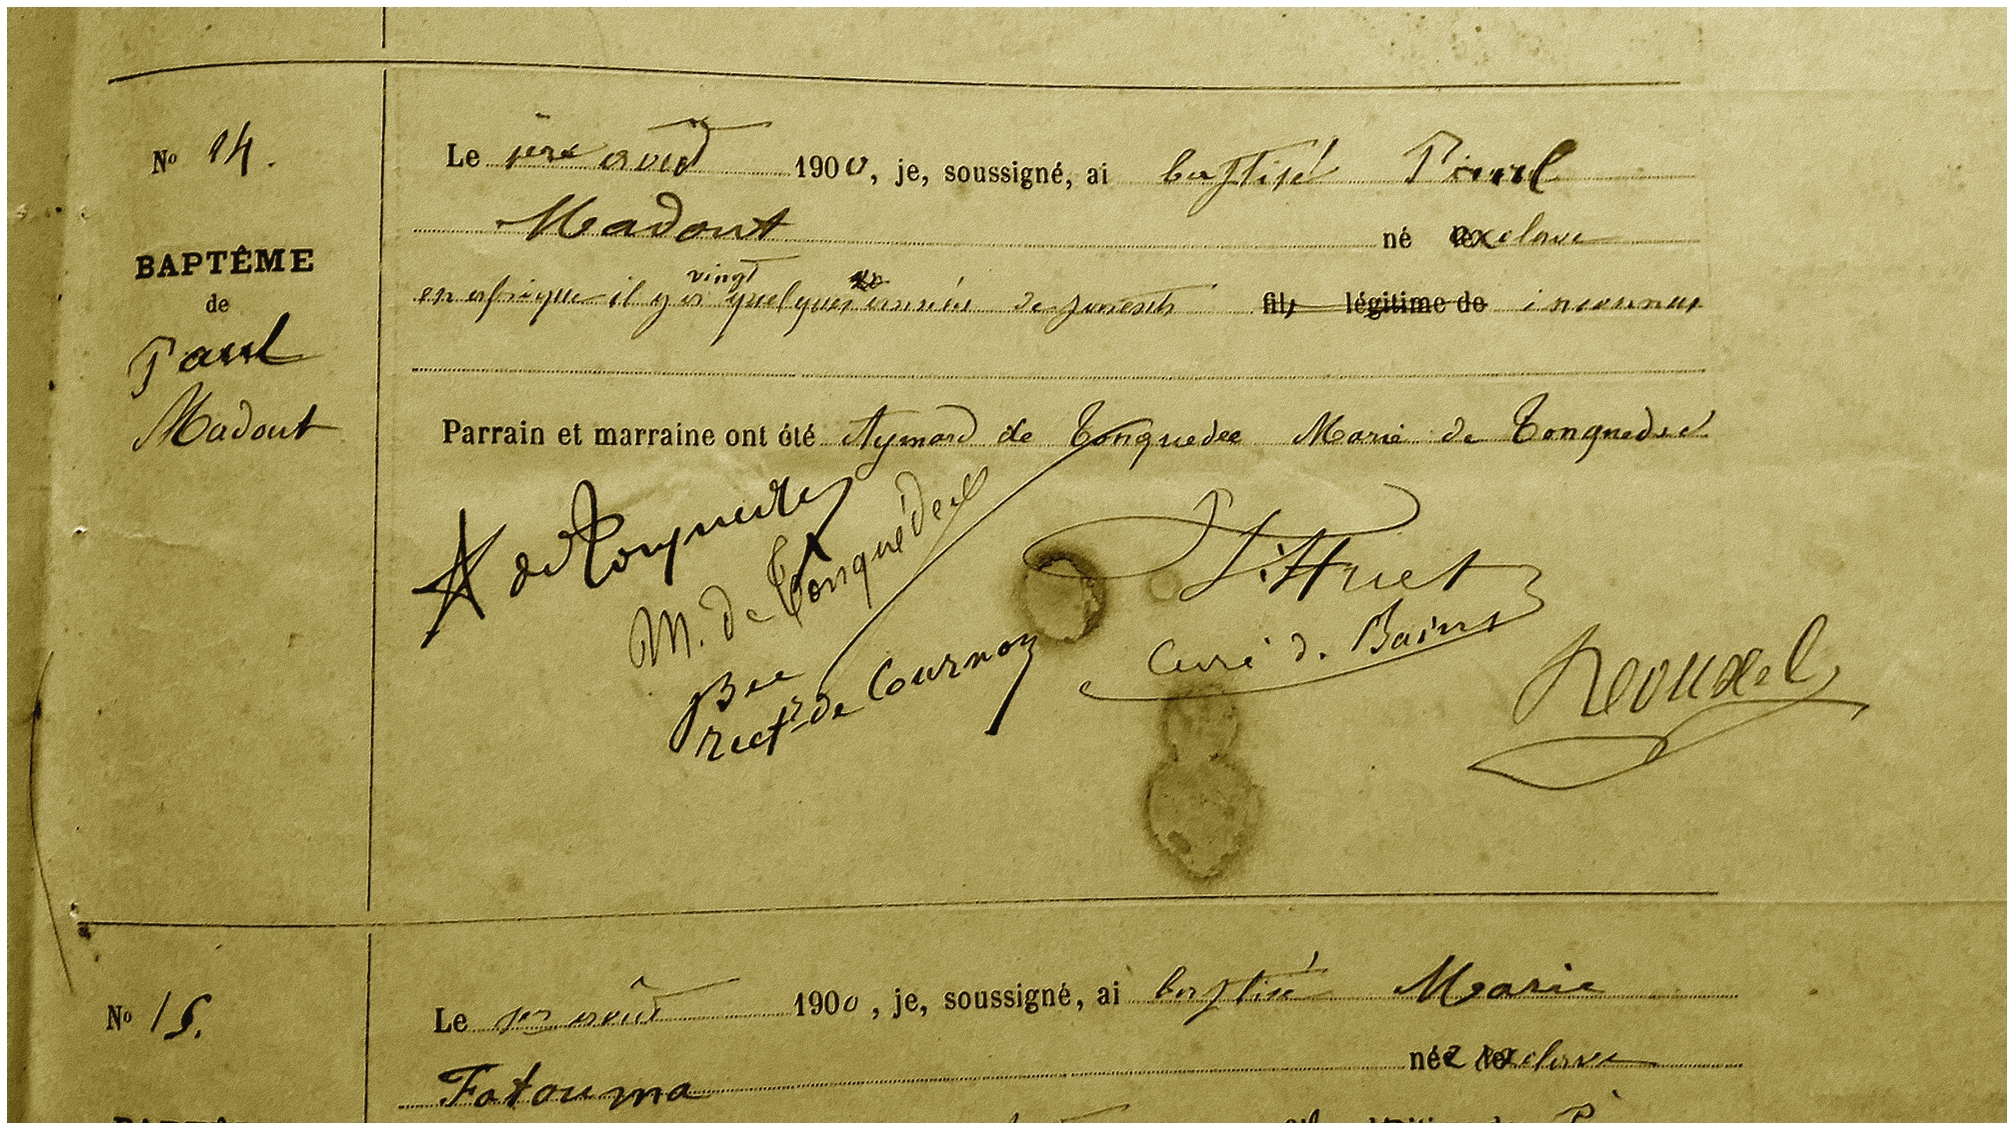 No 14.
BAPTÊME
de
Paul
Madout
Le 1er août 1900, je, soussigné, ai baptisé Paul
Madout né esclave
en afrique il y a vingt quelques années de parents fils légitime de inconnus
Parrain et marraine ont été Aymard de Tonquedec Marie de Tonquedec
A de Tonquedec
M. de Tonquédec
J. Huet
Curé d. Bains
Bec
rectr de Cournon
Rouxel
No 15.
Le 1er août 1900, je, soussigné, ai baptisé Marie
Fatouma née esclave